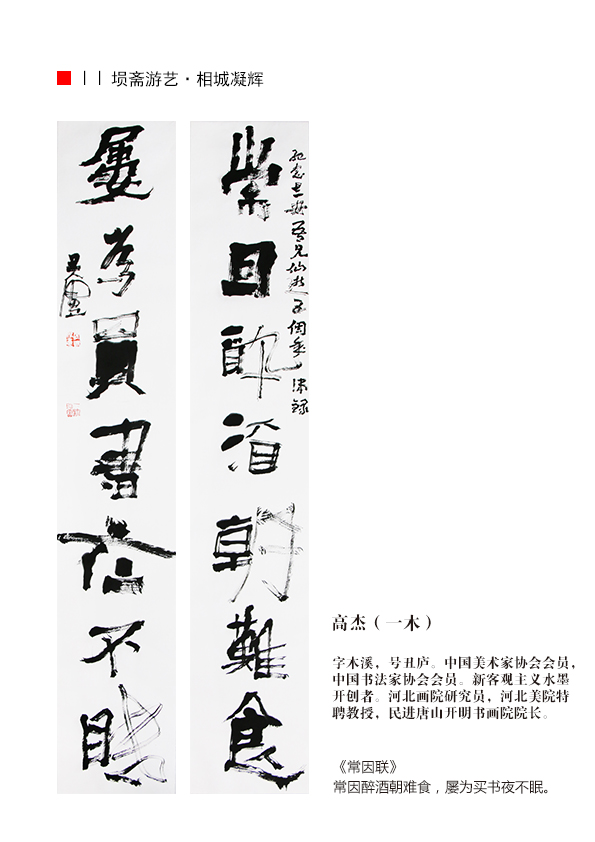 丨丨 埙斋游艺·相城凝辉
常因醉酒朝難食
屢為買書夜不眠
丑廬
高杰（一木）
字木溪，号丑庐。中国美术家协会会员，
中国书法家协会会员。新客观主义水墨
开创者。河北画院研究员，河北美院特
聘教授，民进唐山开明书画院院长。
《常因联》
常因醉酒朝难食，屡为买书夜不眠。